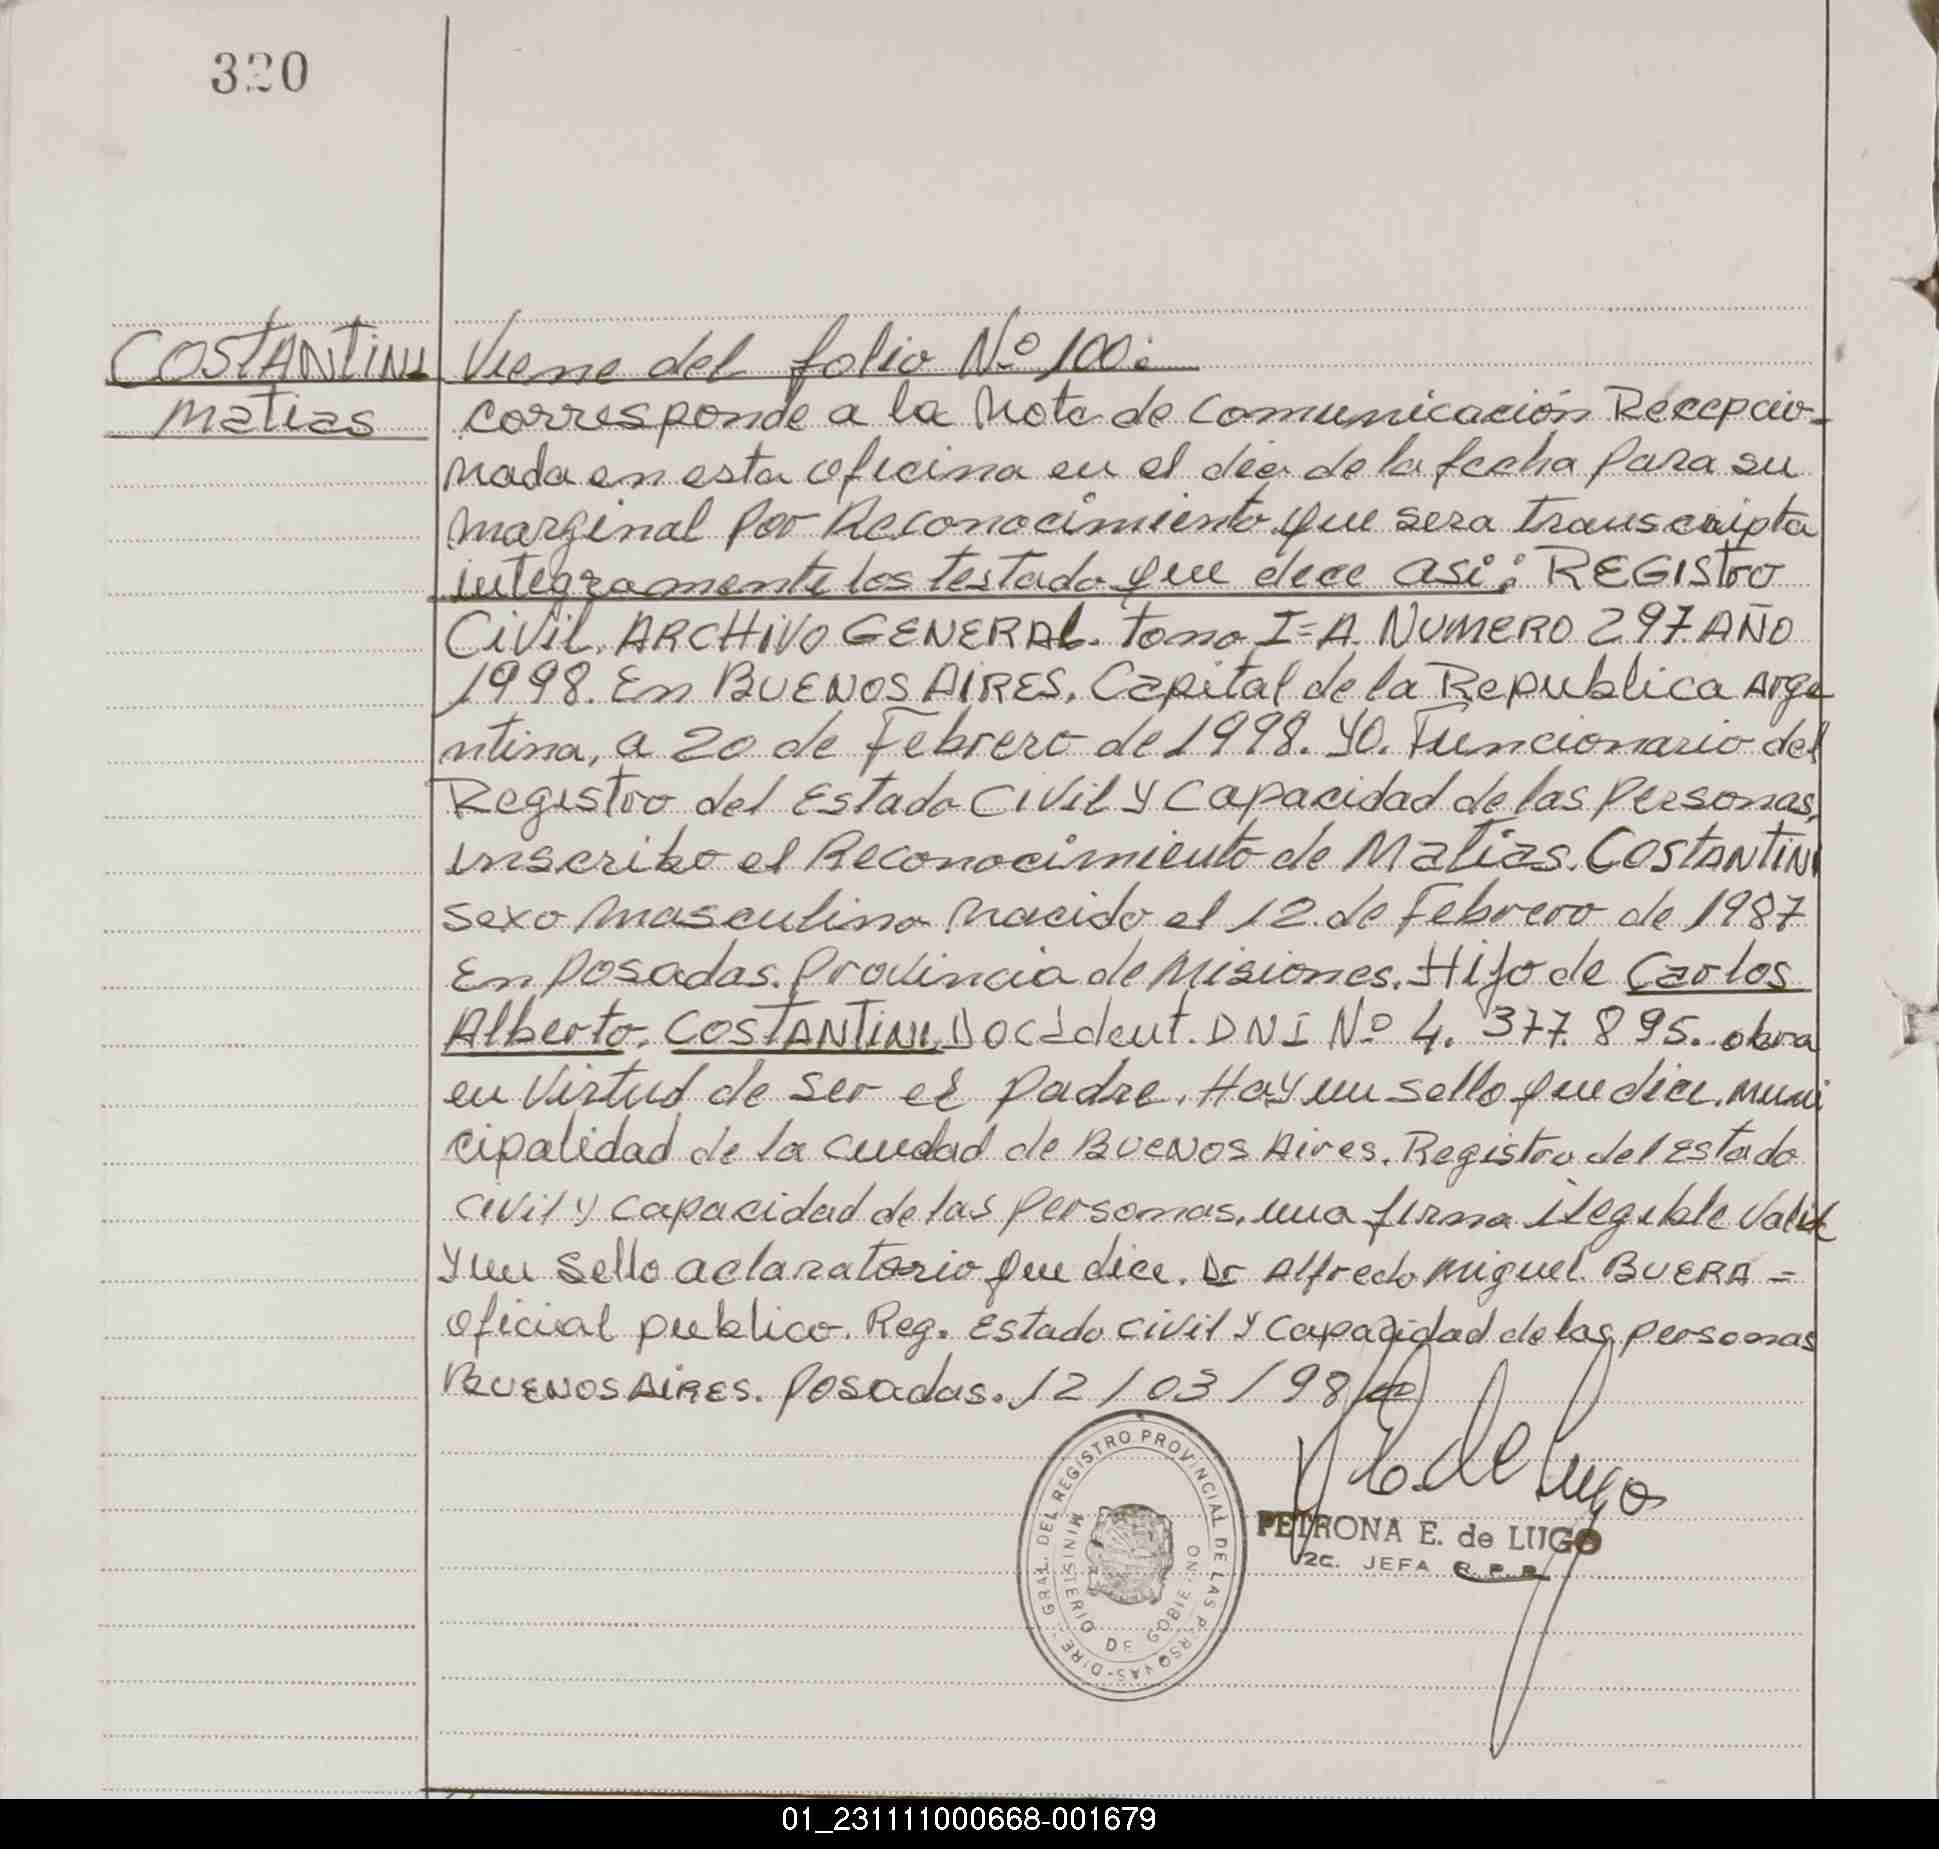 320
COSTANTINI
Matias
Viene del folio Nº 100:
corresponde a la Nota de Comunicación Recepcio-
nada en esta oficina en el dia de la fecha para su
marginal por Reconocimiento que sera transcripta
integramente los testado que dice asi: REGIStro
CiVil, ARCHiVO GENERAL. tomo I=A. NUMERO 297 AÑO
1998. En BUENOS AIRES, Capital de la Republica Arge
ntina, a 20 de Febrero de 1998. YO. Funcionario del
Registro del Estado Civil y Capacidad de las personas,
inscribo el Reconocimiento de Matias. COSTANTINI
sexo masculino nacido el 12 de Febrero de 1987
En Posadas. Provincia de Misiones. Hijo de Carlos
Alberto. COSTANTINI. Doc Ident. DNI Nº 4. 377. 895. obra
en Virtud de ser el padre. Hay un sello que dice. Muni
cipalidad de la Ciudad de BUENOS Aires. Registro del Estado
Civil y Capacidad de las personas. una firma ilegible Valid
y un sello aclaratorio que dice. Dr Alfredo Miguel. BUERA =
oficial publico. Reg. Estado Civil y Capacidad de las personas
BUENOS AIRES. Posadas. 12/03/98
DIRE. GRAL. DEL REGISTRO PROVINCIAL DE LAS PERSONAS-
MINISTERIO DE GOBIERNO
P E de Lugo
PETRONA E. de LUGO
2C. JEFA R. P. P.
01_231111000668-001679